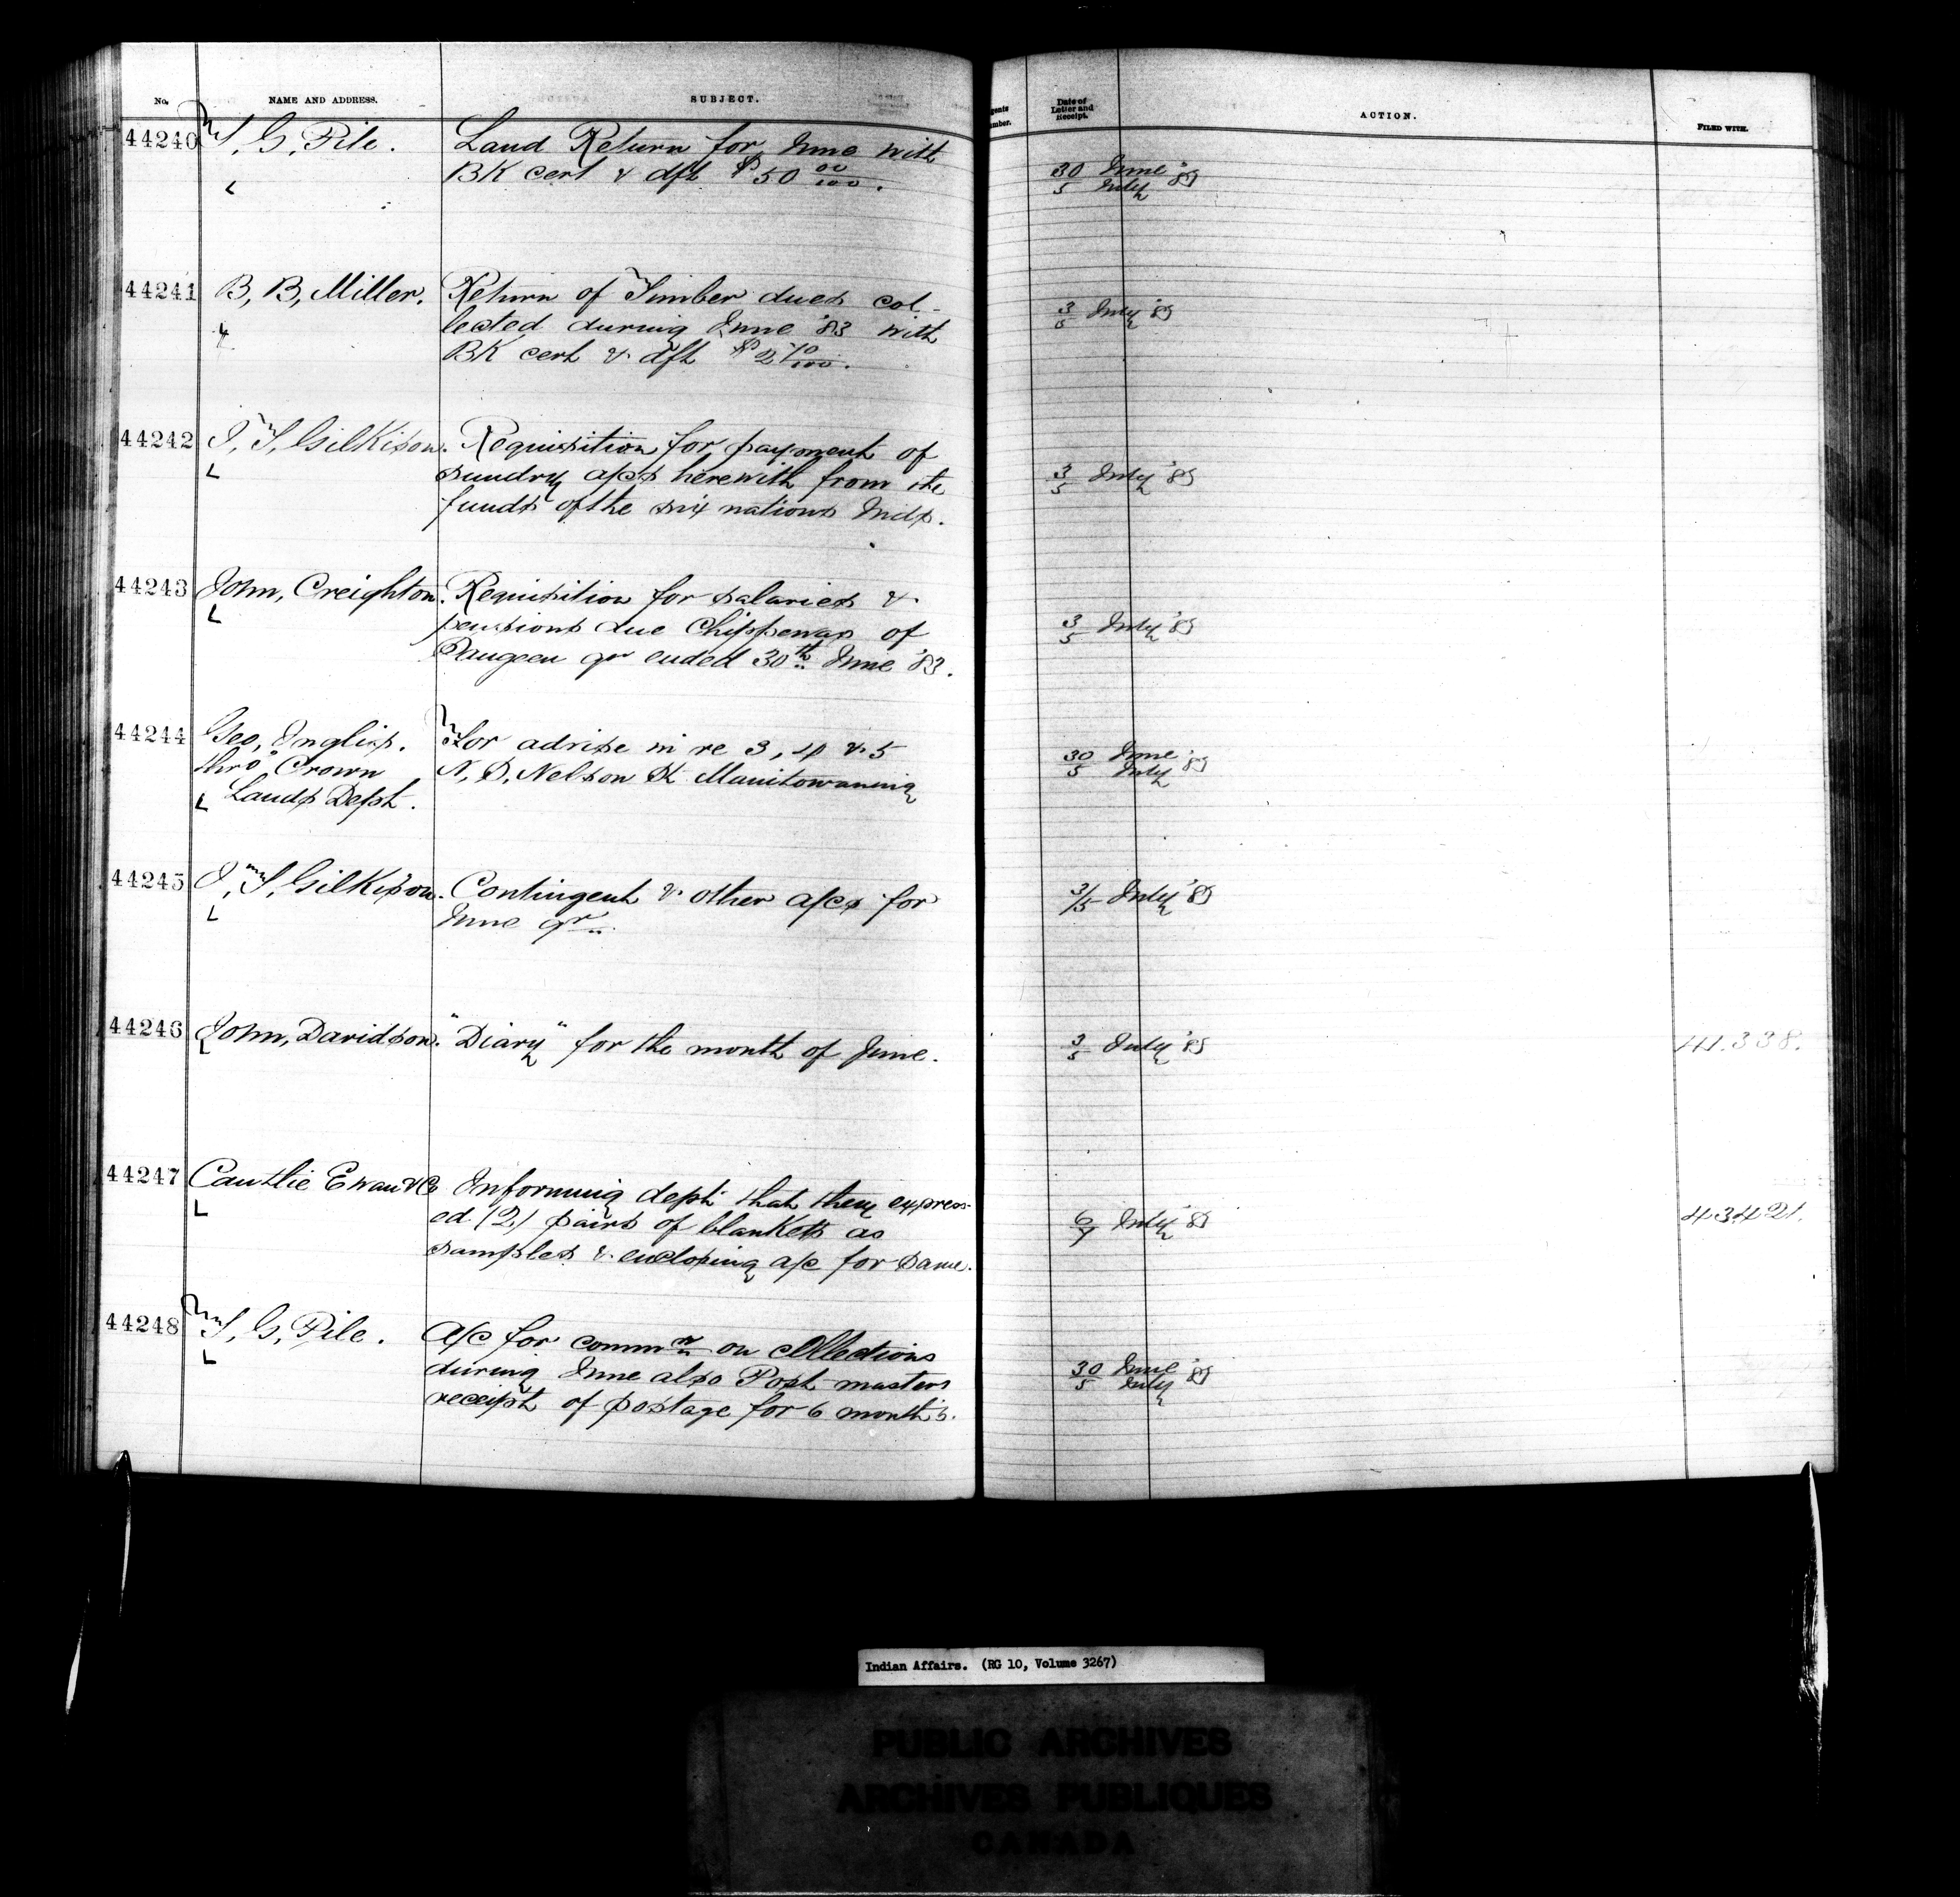 No. NAME AND ADDRESS. SUBJECT. Date of Letter and Receipt. ACTION. FILED WITH.
44240 T, G, Pile. Land Return for June with
BK cert & dft $50 00/100.
30 June 5 July '83
44241 B, B, Miller. Return of Timber dues col-
lected during June '83 with
BK cert & dft $2 70/100.
3/5 July '83
44242 J, T, Gilkison. Requisition for payment of
sundry a/cs herewith from the
funds of the six nations Inds.
3/5 July '83
44243 John, Creighton. Requisition for salaries &
pensions due Chippewas of
Saugeen qr ended 30th June '83.
3/5 July '83
44244 Geo, Inglis. For advise in re 3, 4 & 5
thro' Crown N, S, Nelson St Manitowaning
Lands Dept.
30 June 5 July '83
44245 J, T, Gilkison. Contingent & other a/cs for
June qr.
3/5 July '83
44246 John, Davidson. "Diary" for the month of June.
3/5 July '83 41.338.
44247 Cantlie Ewan & Co Informing dept that they express-
ed (2) pairs of blankets as
samples & enclosing a/c for same.
6/7 July '83 43421.
44248 T, G, Pile. A/c for commn on collections
during June also Post masters
receipt of postage for 6 months.
30 June 5 July '83
Indian Affairs. (RG 10, Volume 3267)
PUBLIC ARCHIVES
ARCHIVES PUBLIQUES
CANADA